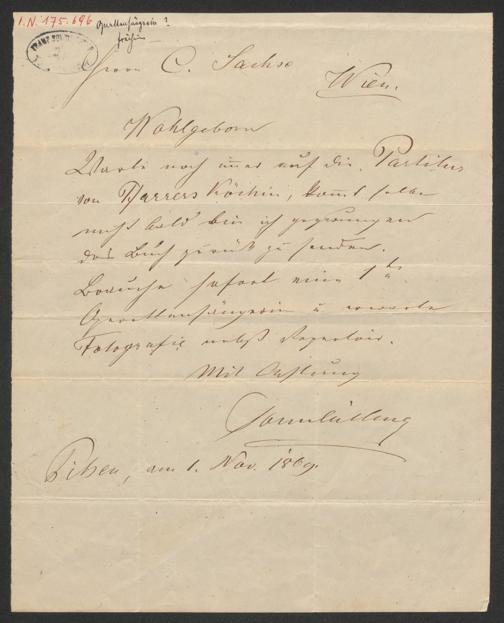 I.N. 175.696
Operettensängerin?
Herrn C. Sachse
Wien.
Wohlgeborn
Warte noch immer auf die Partitur
von Pfarrers Köchin, kommt selbe
nicht bald bin ich gezwungen
das Buch zurück zu senden.
Brauche sofort eine 1te
Operettensängerin u erwarte
Fotografie nebst Repertoir.
Mit Achtung
Pilsen, am 1. Nov. 1869.